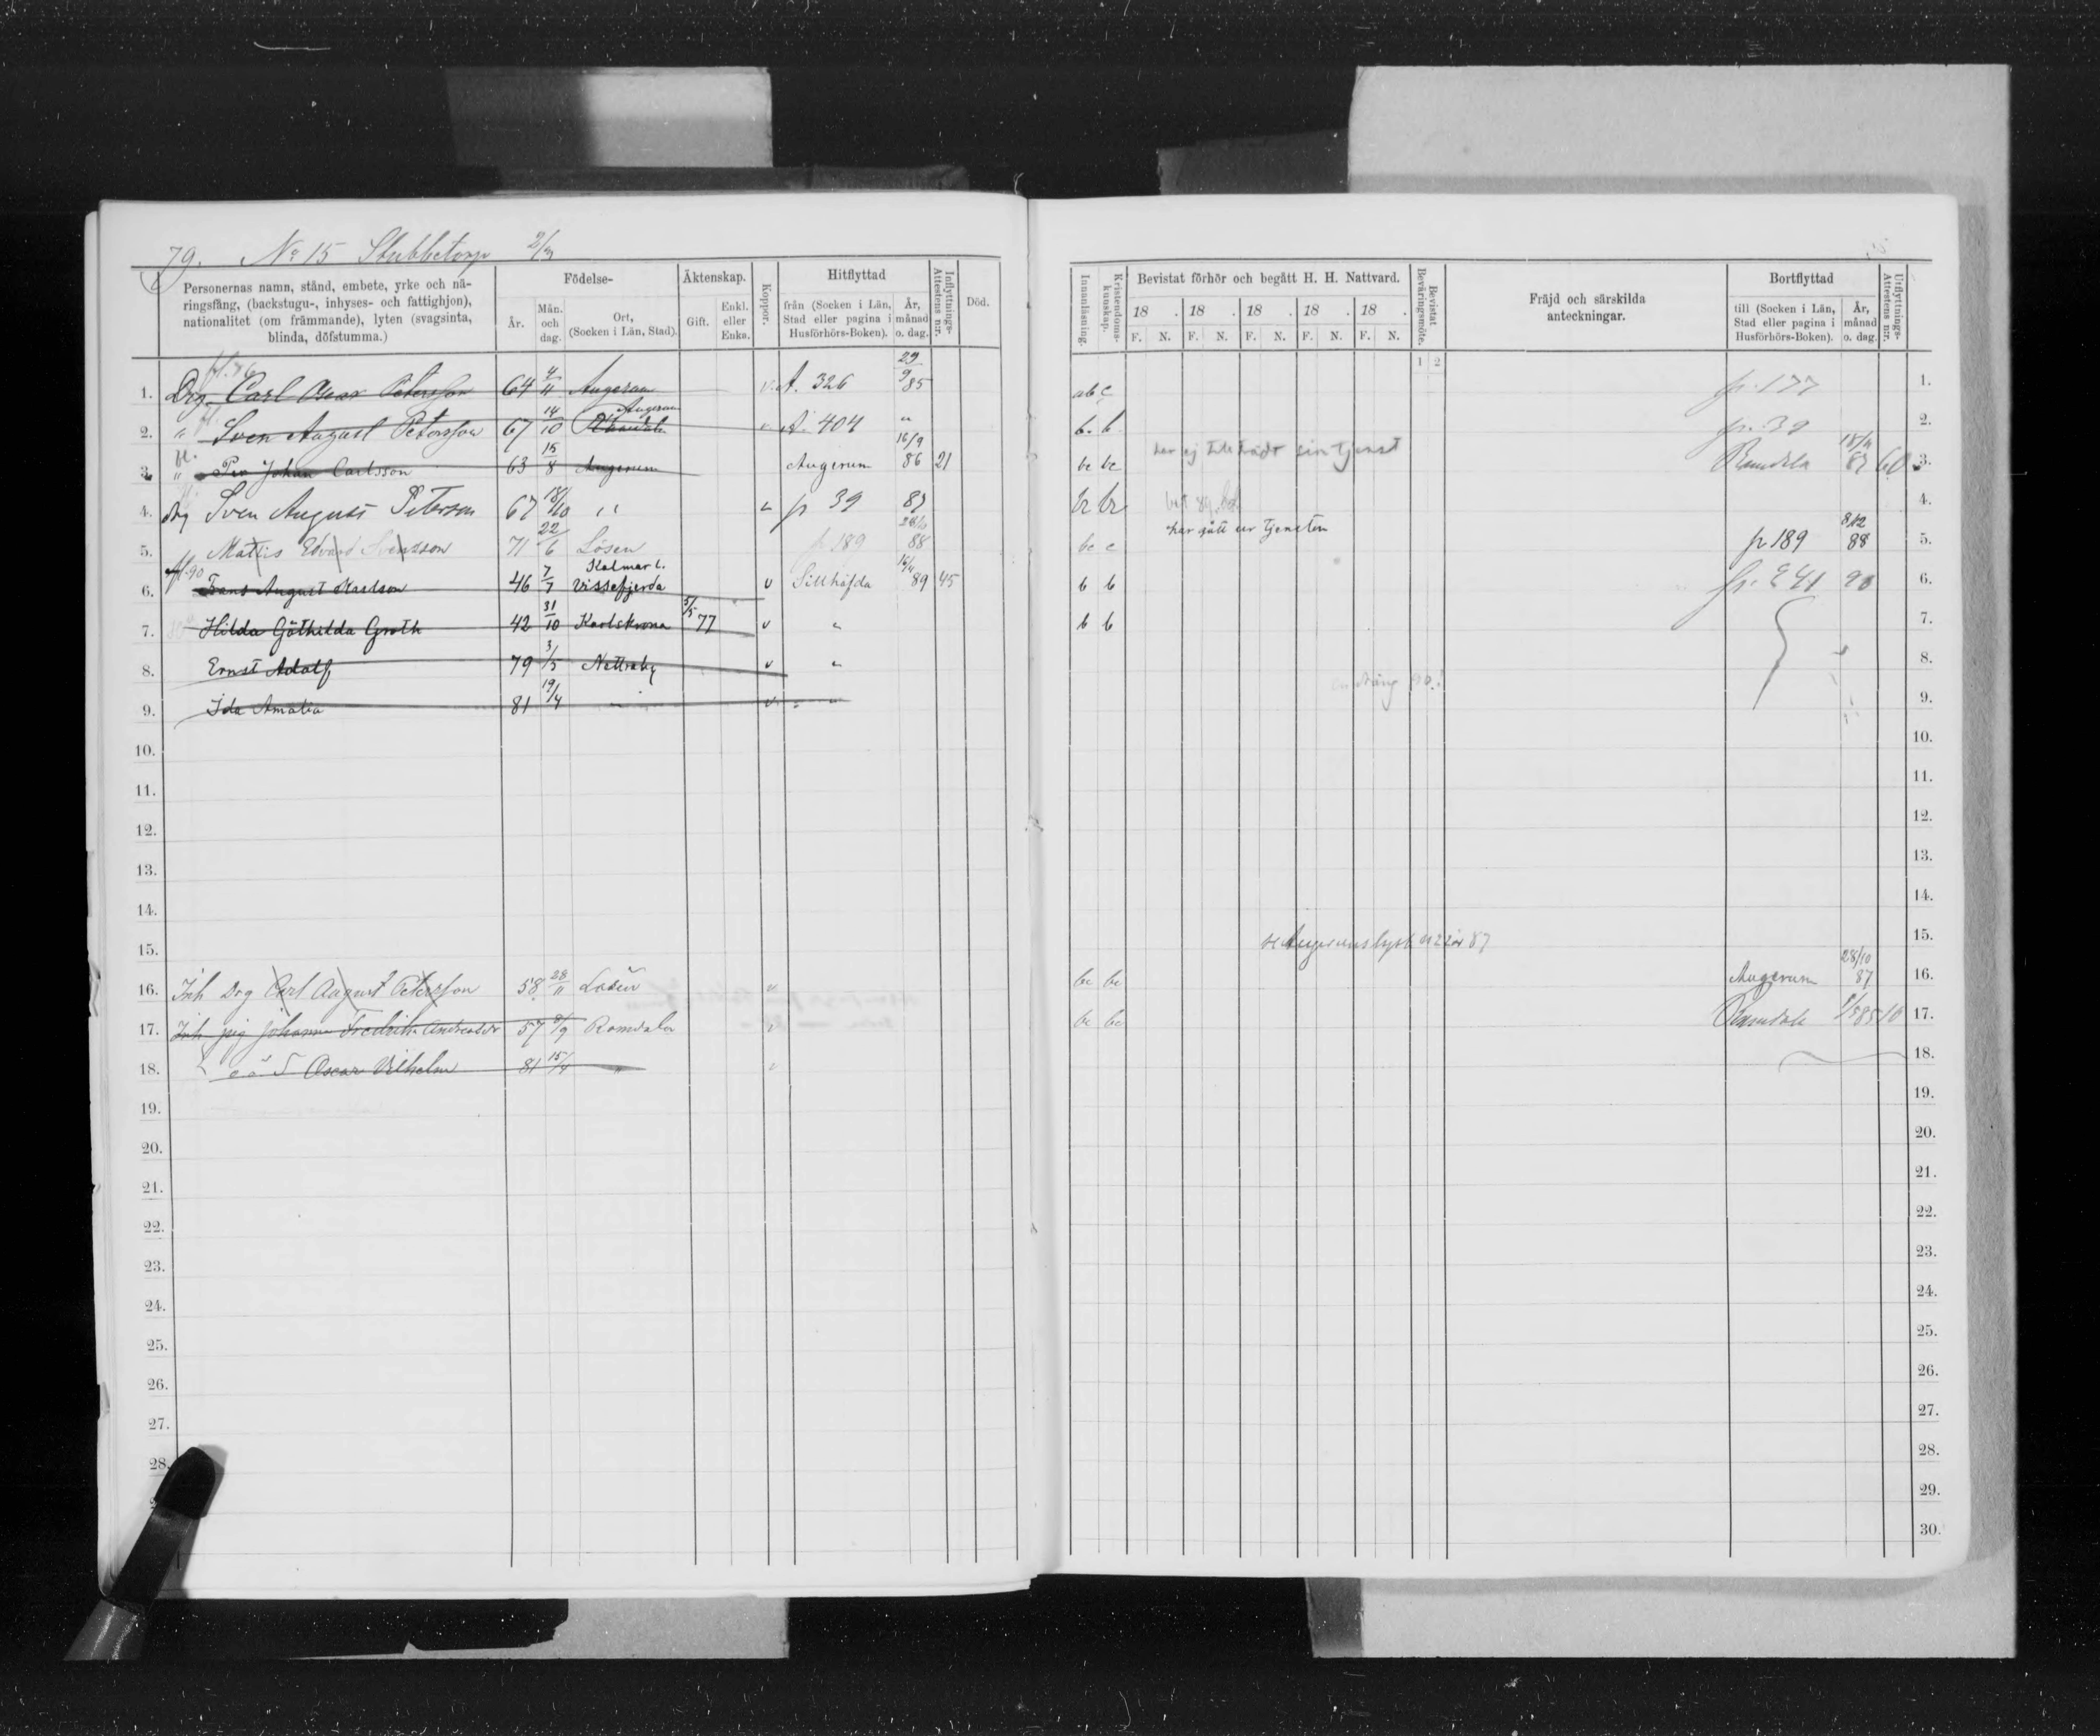 79. No 15 Stubbetorp 2/3
Personernas namn, stånd, embete, yrke och näringsfång, (backstugu-, inhyses- och fattighjon), nationalitet (om främmande), lyten (svagsinta, blinda, döfstumma.)
Födelse-
År.
Mån. och dag.
Ort, (Socken i Län, Stad).
Äktenskap.
Gift.
Enkl. eller Enka.
Koppor.
Hitflyttad
från (Socken i Län, Stad eller pagina i Husförhörs-Boken).
År, månad o. dag.
Inflyttnings-Attestens n:r.
Död.
Innanläsning.
Kristendoms-kunskap.
Bevistat förhör och begått H. H. Nattvard.
18 . 18 . 18 . 18 . 18 .
F. N. F. N. F. N. F. N. F. N.
Bevistat Beväringsmöte.
1 2
Fräjd och särskilda anteckningar.
Bortflyttad
till (Socken i Län, Stad eller pagina i Husförhörs-Boken).
År, månad o. dag.
Utflyttnings-Attestens n:r.
1. Drg Carl Oscar Petersson 64 4/11 Augerum v. A. 326 29/9 85 ab c p. 177 1.
2. " Sven August Petersson 67 14/10 Augerum A. 404 " b. b p. 39 2.
3. " Per Johan Carlsson 63 15/8 Augerum Augerum 16/9 86 21 bc bc har ej tillträdt sin tjenst Ramdala 87 60 3.
4. drg Sven August Peterson 67 18/10 " p 39 87 4.
5. Mattis Edvard Svensson 71 22/6 Lösen p 189 88 bc c har gått ur tjensten p 189 88 5.
6. fl. 90 Frans August Karlson 46 7/7 Kalmar l. Vissefjerda v Sillhöfda 16/4 89 45 b b p. 241 90 6.
7. Hilda Göthilda Groth 42 31/10 Karlskrona 5/5 77 v " b b 7.
8. Ernst Adolf 79 3/5 Nettraby v " 8.
9. Ida Amalia 81 19/4 " v " 9.
10. 10.
11. 11.
12. 12.
13. 13.
14. 14.
15. 15.
16. Inh Drg Carl August Petersson 58 28/11 Lösen " bc bc Augerum 28/10 87 16.
17. Inh pig Johanna Fredrika Andreasdr 57 8/9 Ramdala v bc bc Ramdala 85 10 17.
18. o ä S Oscar Vilhelm 81 15/4 " v 18.
19. 19.
20. 20.
21. 21.
22. 22.
23. 23.
24. 24.
25. 25.
26. 26.
27. 27.
28. 28.
29.
30.